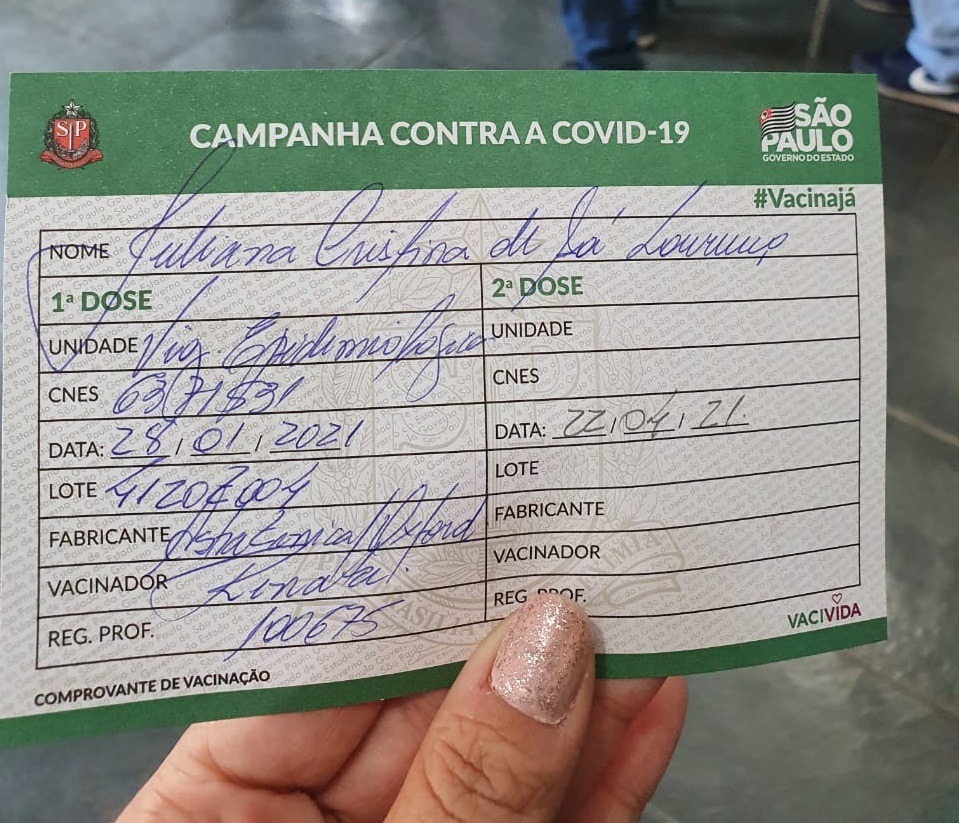 SP
CAMPANHA CONTRA A COVID-19
SÃO PAULO
GOVERNO DO ESTADO
#Vacinajá
NOME Juliana Cristina de Sá Lourenço
1ª DOSE
UNIDADE Vig. Epidemiológica
CNES 6371831
DATA: 28/01/2021
LOTE
FABRICANTE AstraZenica/Oxford
VACINADOR
REG. PROF. 100675
2ª DOSE
UNIDADE
CNES
DATA: 22/04/21.
LOTE
FABRICANTE
VACINADOR
REG. PROF.
VACIVIDA
COMPROVANTE DE VACINAÇÃO